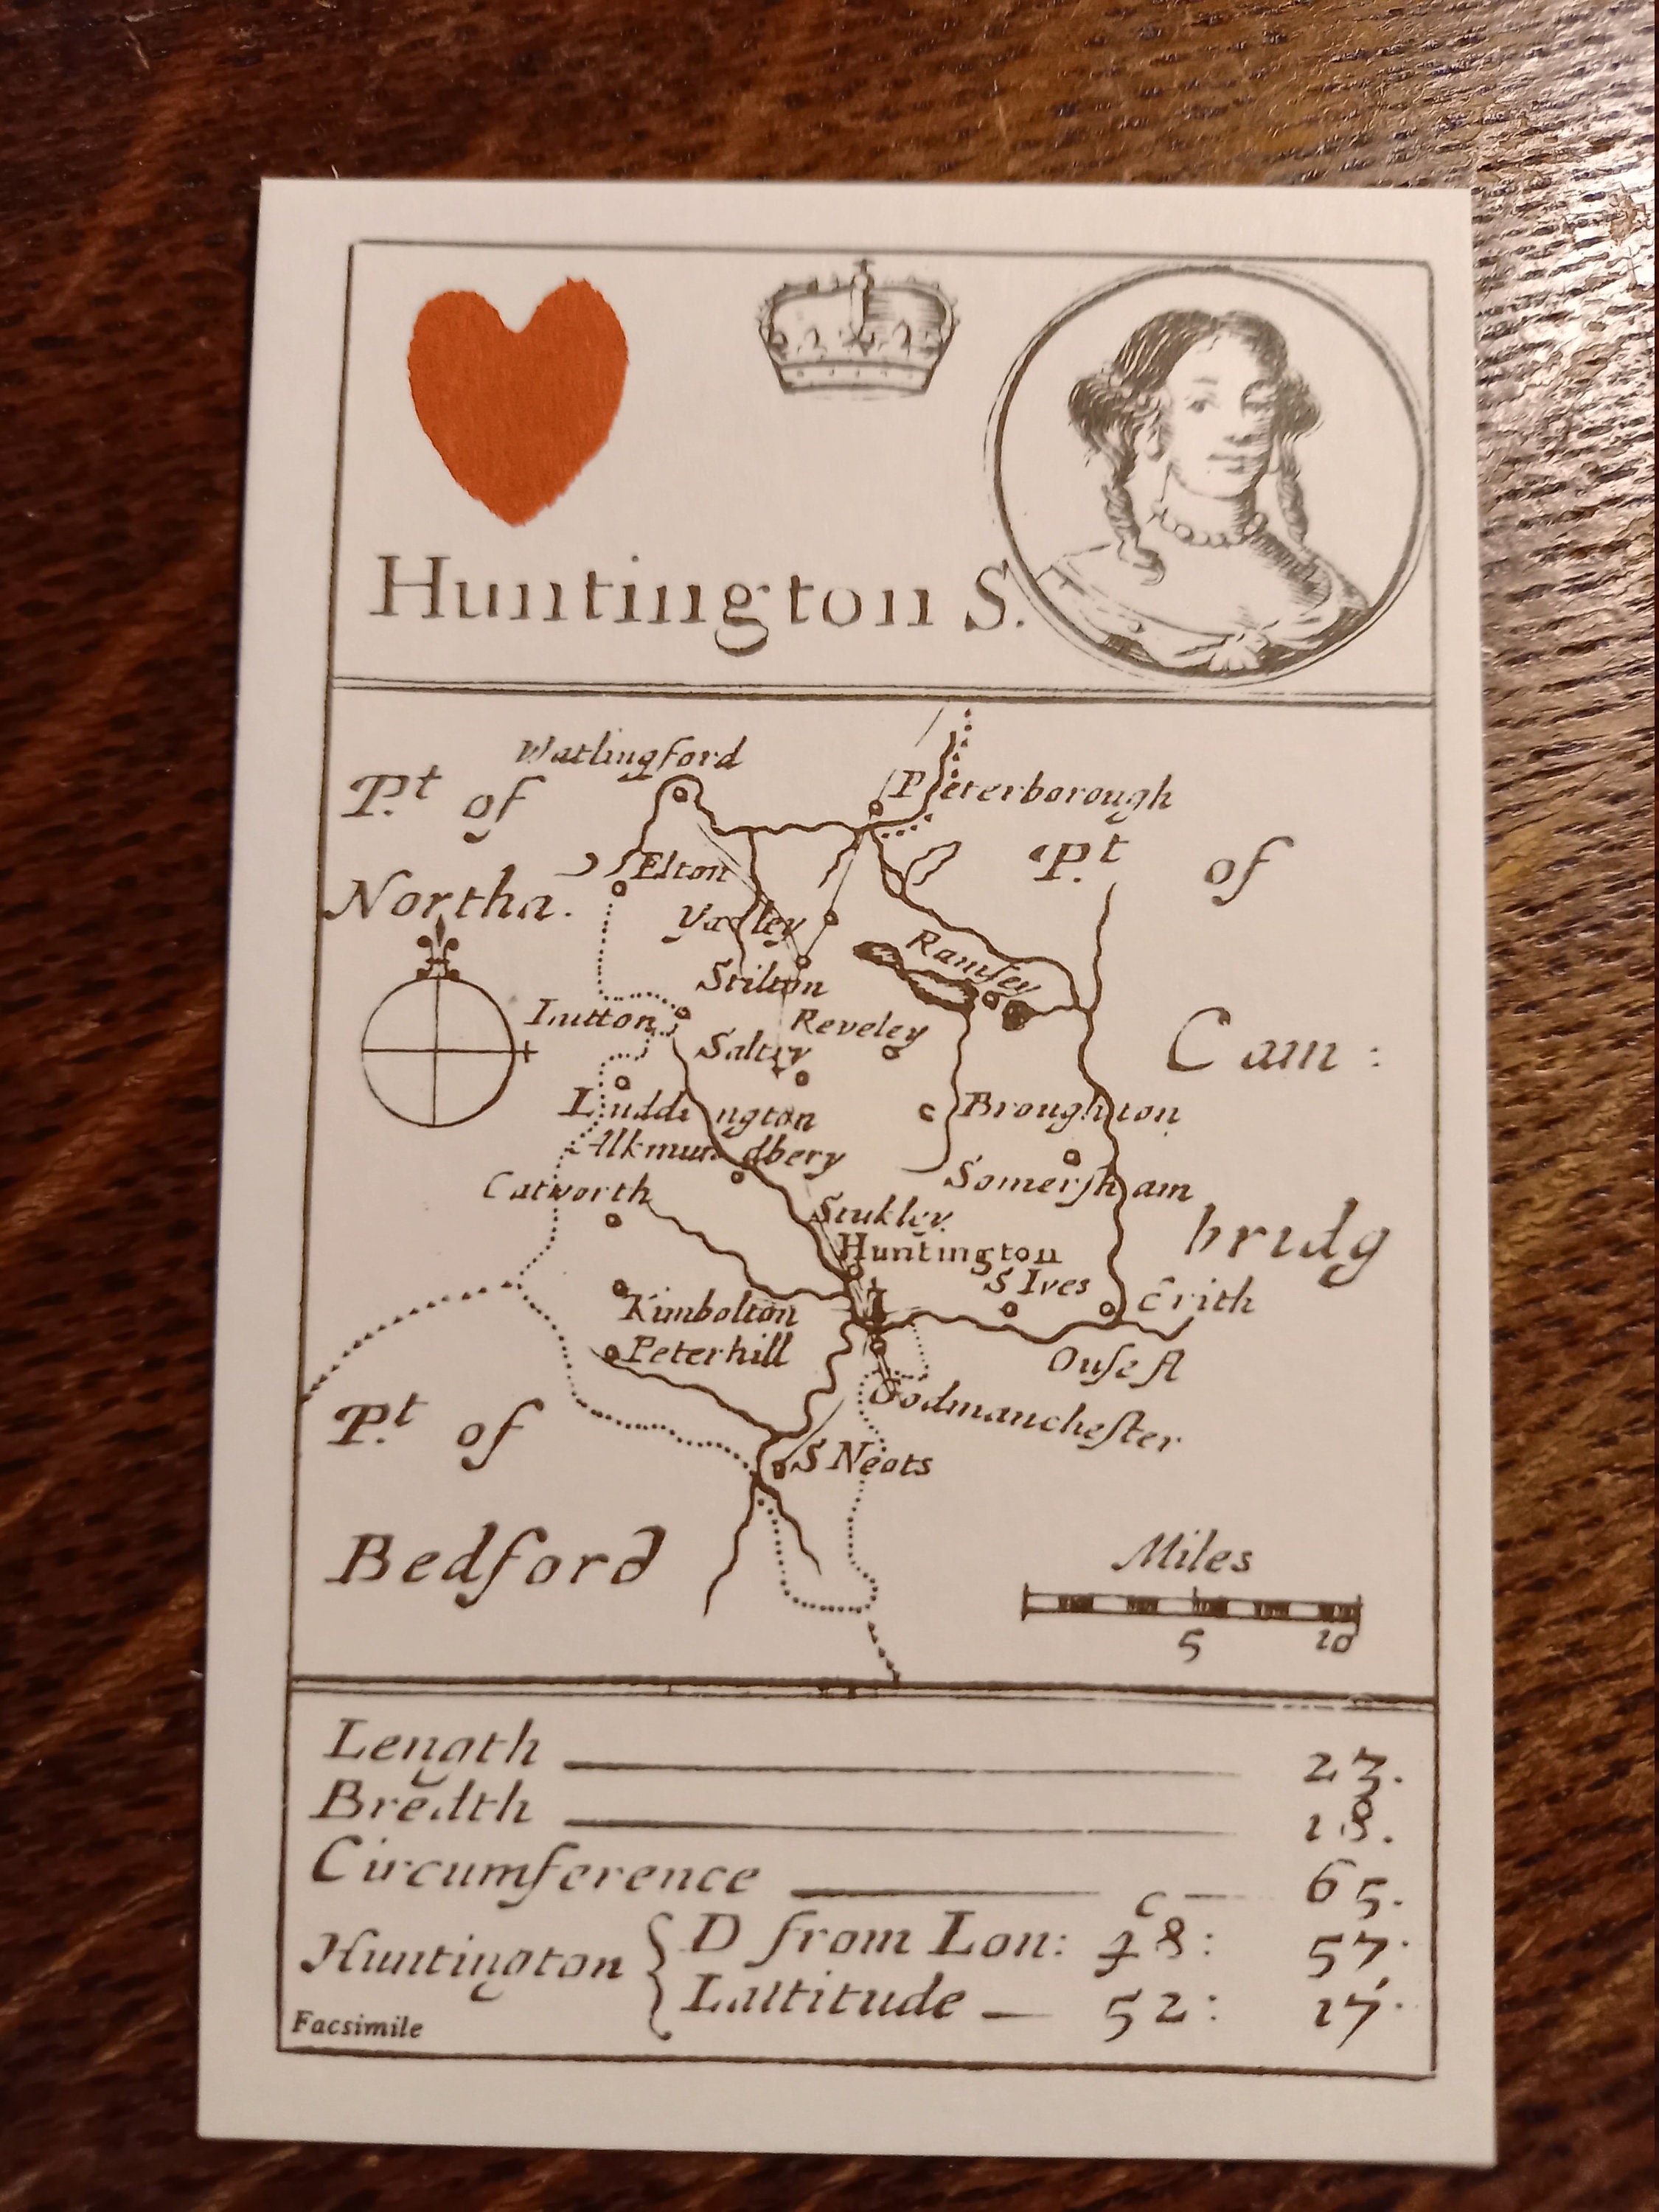 Huntington S.
Watlingford
Peterborough
P.t of
Northa.
P.t of
Cam:
bridg
Elton
Yaxley
Ramsey
Stilton
Lutton
Reveley
Saltry
Luddington
Broughton
Alkmundbery
Somersham
Catworth
Stukley.
Huntington
S Ives
Erith
Kimbolton
Peterhill
Ouse fl
Godmanchester
P.t of
Bedford
S Neots
Miles
5 10
Length 27.
Bredth 18.
Circumference 65.
Huntington { D from Lon: 48: 57.
Lattitude 52: 17.
Facsimile